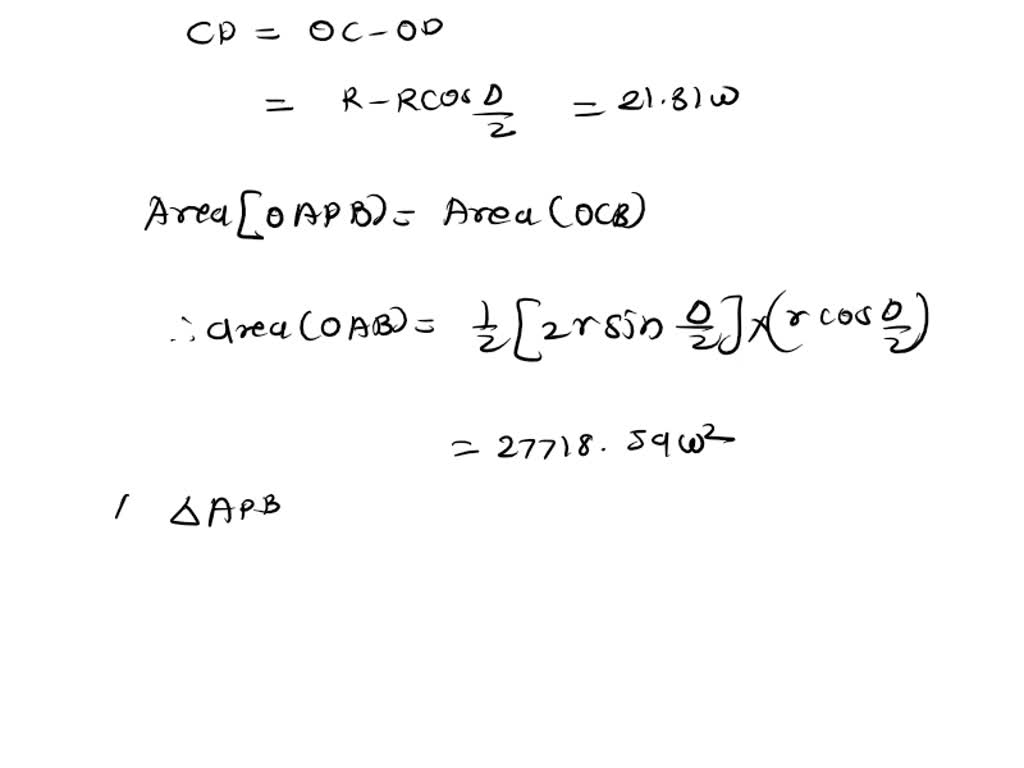 CD = OC - OD
= R - R cos D/2 = 21.81 ω
Area [OAPB) = Area (OCB)
∴ area (OAB) = 1/2 [2r sin D/2] × (r cos D/2)
= 27718.59 ω²
/ △APB